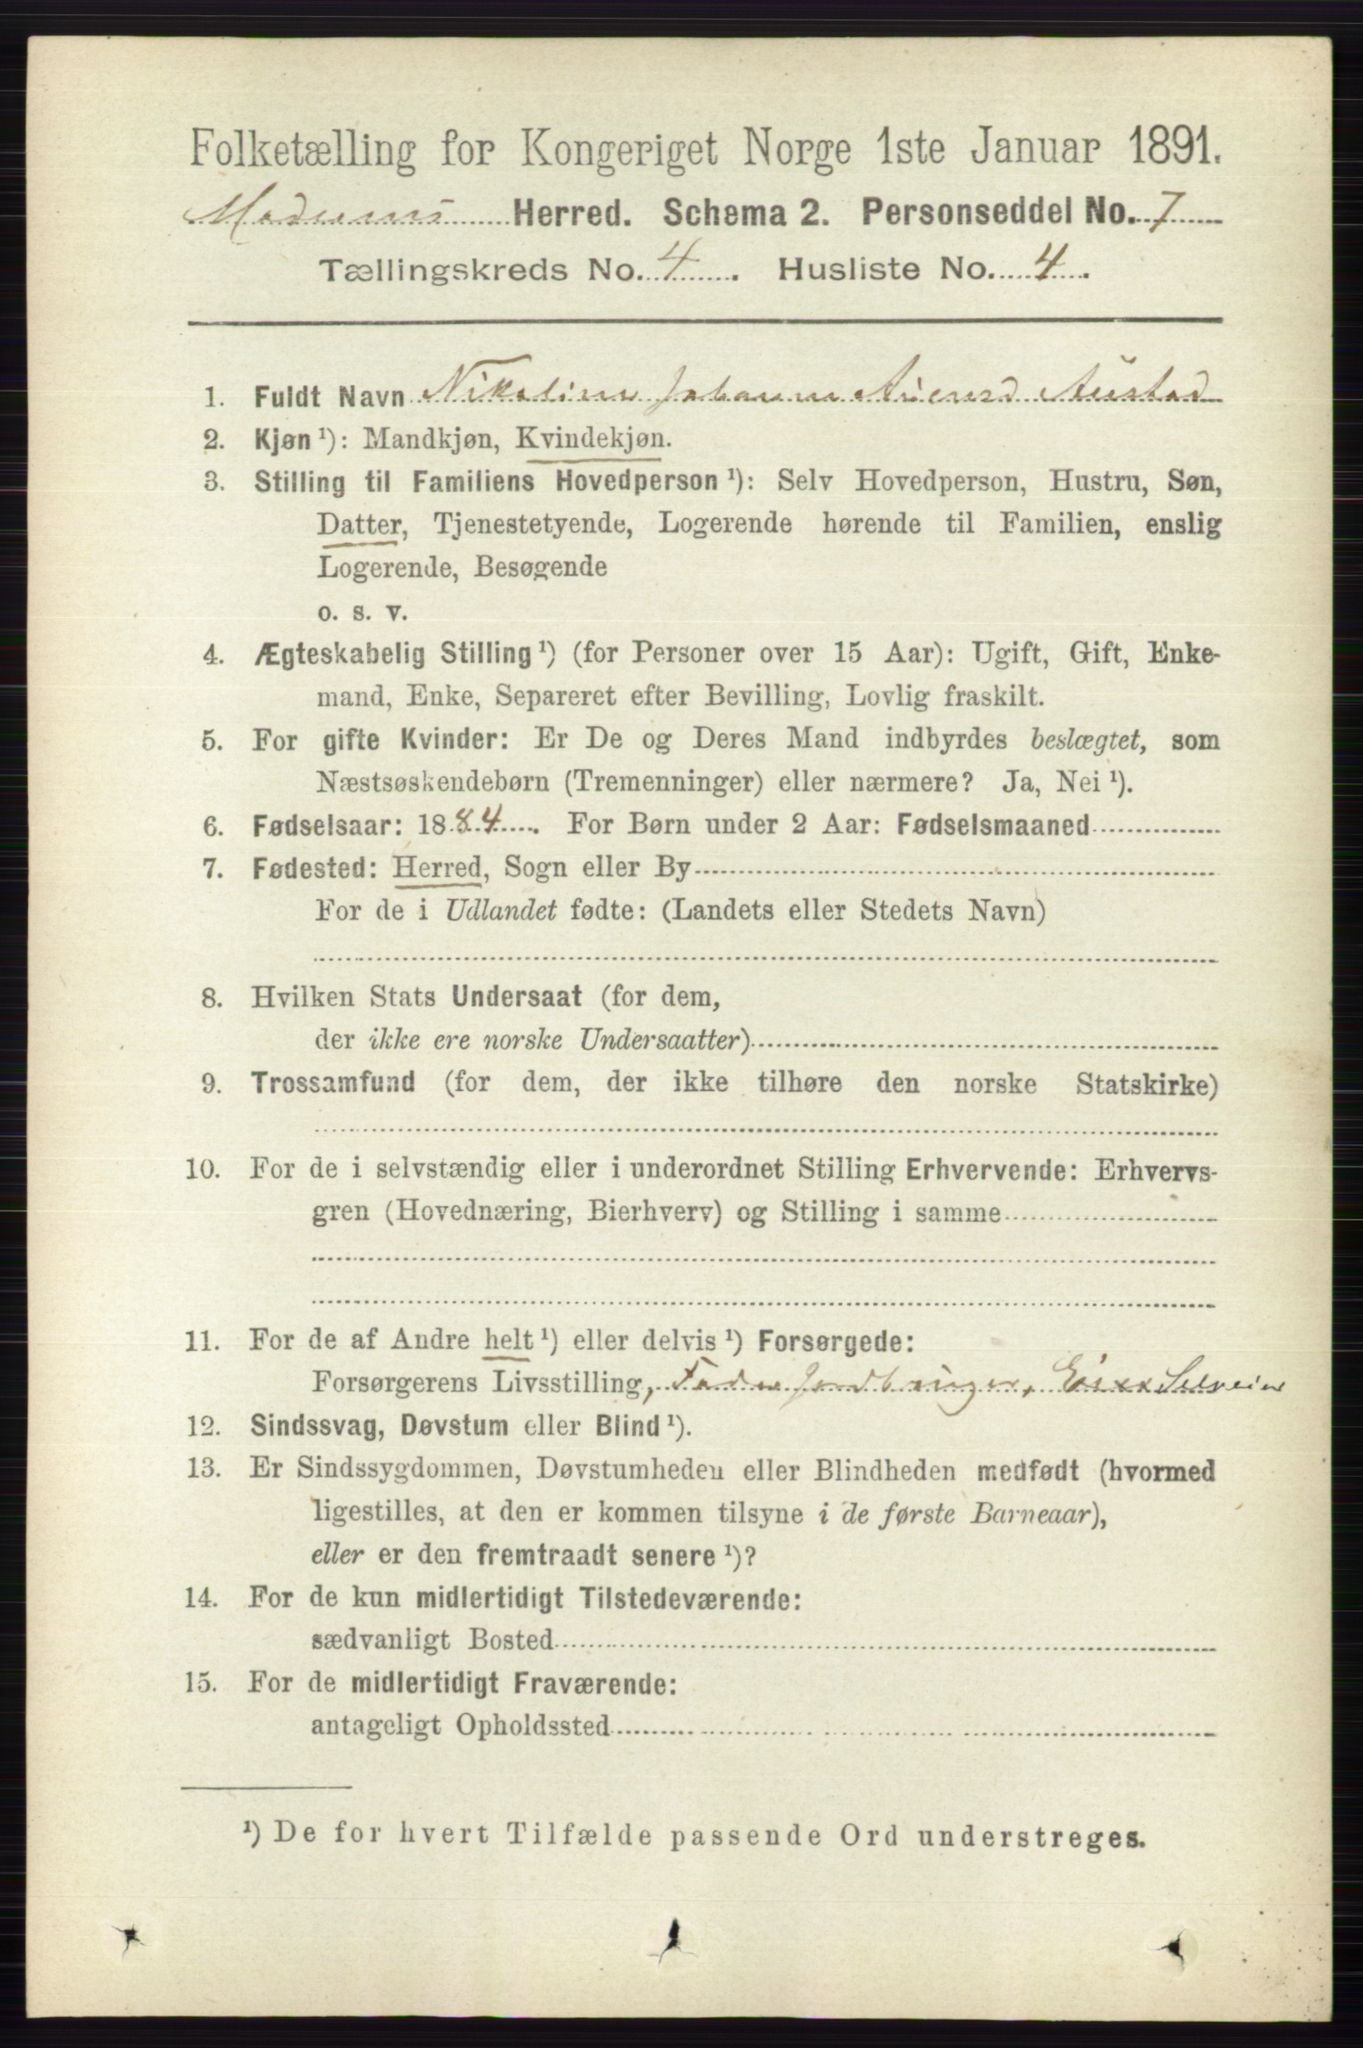 Folketælling for Kongeriget Norge 1ste Januar 1891.
Modums Herred. Schema 2. Personseddel No. 7
Tællingskreds No. 4. Husliste No. 4.
1. Fuldt Navn Nikoline Johanne Austad
2. Kjøn ¹): Mandkjøn, Kvindekjøn.
3. Stilling til Familiens Hovedperson ¹): Selv Hovedperson, Hustru, Søn,
Datter, Tjenestetyende, Logerende hørende til Familien, enslig
Logerende, Besøgende
o. s. v.
4. Ægteskabelig Stilling ¹) (for Personer over 15 Aar): Ugift, Gift, Enke-
mand, Enke, Separeret efter Bevilling, Lovlig fraskilt.
5. For gifte Kvinder: Er De og Deres Mand indbyrdes beslægtet, som
Næstsøskendebørn (Tremenninger) eller nærmere? Ja, Nei ¹).
6. Fødselsaar: 1884. For Børn under 2 Aar: Fødselsmaaned
7. Fødested: Herred, Sogn eller By
For de i Udlandet fødte: (Landets eller Stedets Navn)
8. Hvilken Stats Undersaat (for dem,
der ikke ere norske Undersaatter)
9. Trossamfund (for dem, der ikke tilhøre den norske Statskirke)
10. For de i selvstændig eller i underordnet Stilling Erhvervende: Erhvervs-
gren (Hovednæring, Bierhverv) og Stilling i samme
11. For de af Andre helt ¹) eller delvis ¹) Forsørgede:
Forsørgerens Livsstilling, Fader Jordbruger,
12. Sindssvag, Døvstum eller Blind ¹).
13. Er Sindssygdommen, Døvstumheden eller Blindheden medfødt (hvormed
ligestilles, at den er kommen tilsyne i de første Barneaar),
eller er den fremtraadt senere ¹)?
14. For de kun midlertidigt Tilstedeværende:
sædvanligt Bosted
15. For de midlertidigt Fraværende:
antageligt Opholdssted
¹) De for hvert Tilfælde passende Ord understreges.